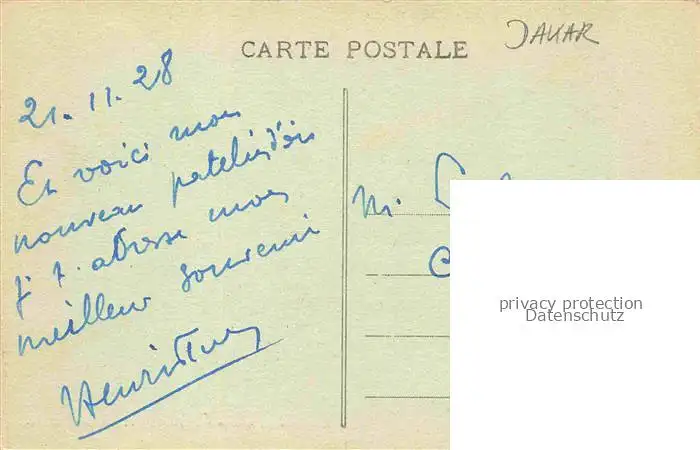 DAKAR
CARTE POSTALE
21.11.28
Et voici mon
nouveau patelin d'où
j t. adresse mon
meilleur souvenir
Henri
M.
privacy protection
Datenschutz